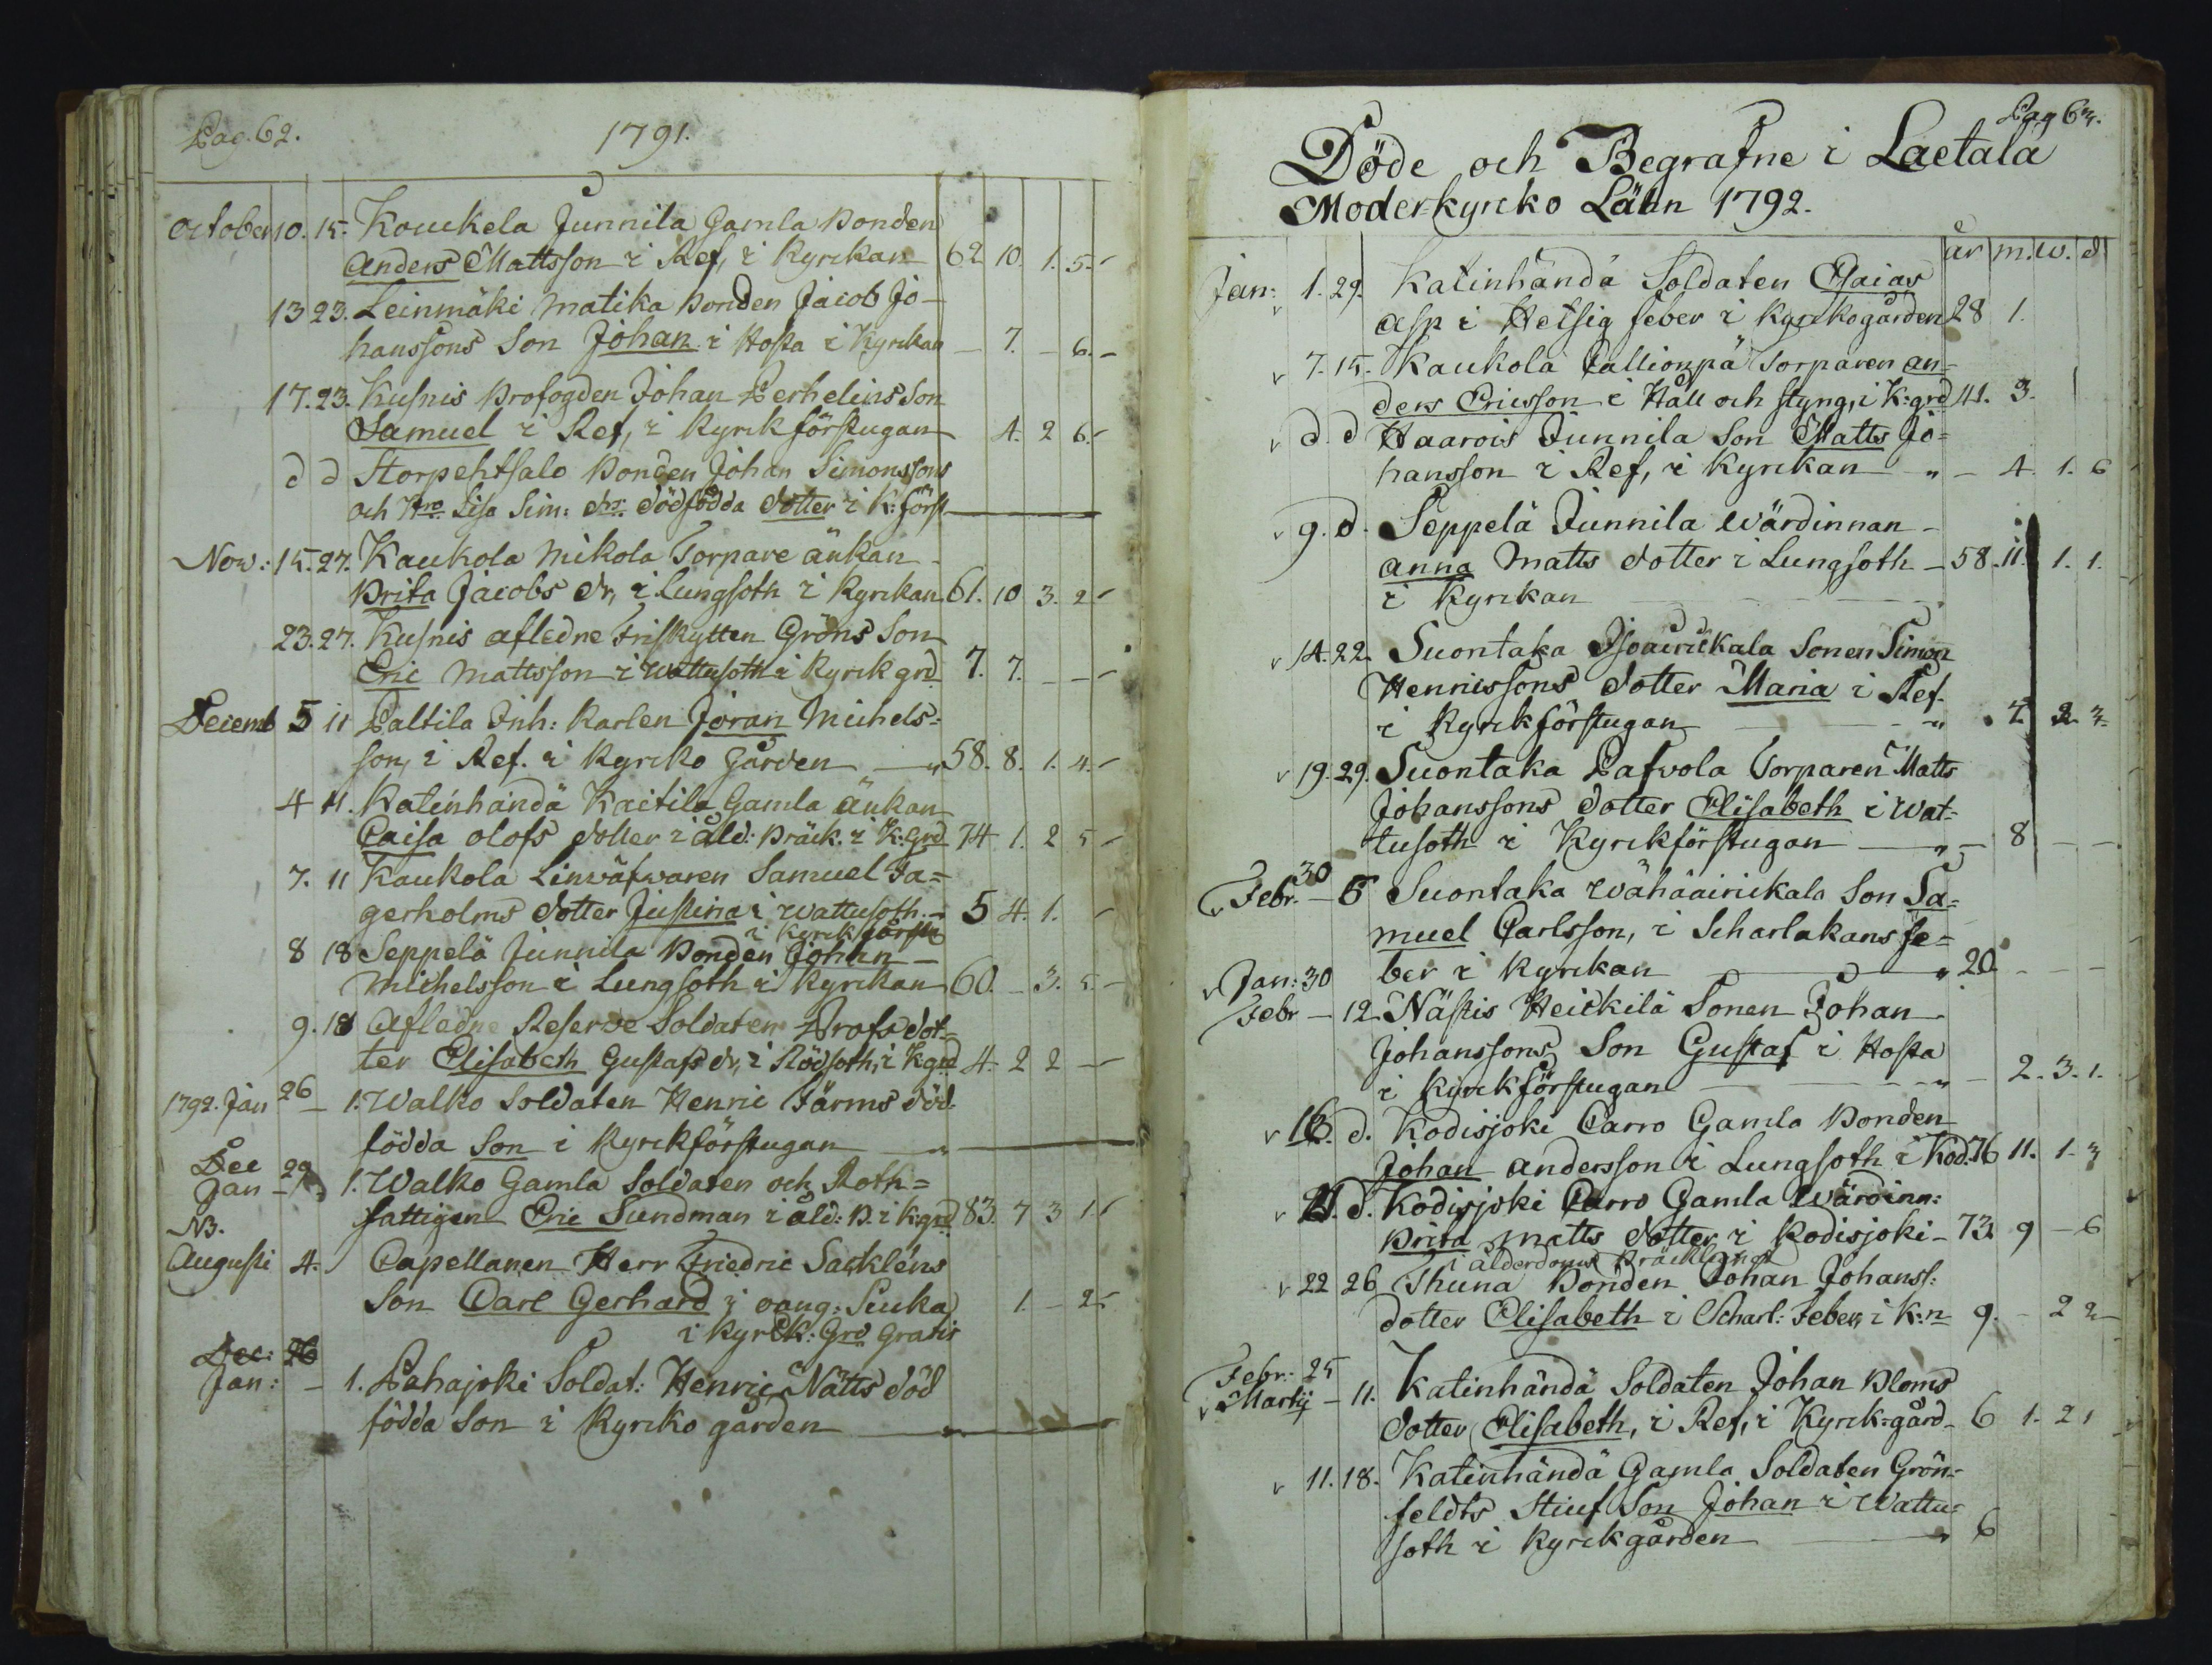 Pag. 62.
1791.
October 10. 15. Koukela Junnila Gamla bonden
Anders Mattsson i Ref, i Kyrckan 62 10. 1. 5.
13 23. Leinmäki Matika bonden Jacob Jo-
hanssons Son Johan i Hosta i Kyrckan - 7. - 6. -
17. 23. Kusnis Profogden Johan Perhelins Son
Samuel i Ref, i Kyrckförstugan 4. 2 6.
d d Storpehtsalo bonden Johan Simonssons
och Hro Lisa Sim: dr. dödfödda dotter i K: först
Nov: 15. 27. Kaukola Mikola Torpare änkan
Brita Jacobs dr, i Lungsoth i Kyrckan 61. 10 3. 2
23. 27. Kusnis afledne Friskytten Gröns Son
Eric Mattsson i Wattusoth i Kyrck grd 7. 7. - -
Decemb 5 11 Paltila Inh: Karlen Jöran Michels-
son, i Ref. i Kyrcko Gården 58. 8. 1. 4.
4 11. Katinhändä Kaitila Gamla änkan
Caisa Olofs dotter i åld: bräck. i K: Grd 74 1. 2 5
7. 11 Kaukola Linwäfwaren Samuel Fa-
gerholms dotter Justina i Wattusoth. - 5 4. 1.
i Kyrck förstu
8 18 Seppelä Junnila bonden Johan -
Michelsson i Lungsoth i Kyrckan 60. - 3. 5. -
9. 18 Afledne Reserve Soldaten Profs dot-
ter Elisabeth Gustafs dr, i Rödsoth, i K grd 4. 2 2 -
1792. Jan 26 - 1. Walko Soldaten Henric Järms död-
födda Son i Kyrckförstugan
Dec 29
Jan - 1. Walko Gamla Soldaten och Roth=
NB. fattigen Eric Sundman i åld: B. i K grd 83. 7 3 1
Augusti 4. Capellanen Herr Friedric Sackléns
Son Carl Gerhard i oang: Siuka 1 - 2
i Kyrck: Grd Gratis
Dec: 26
Jan: - 1. Lahajoki Soldat: Henric Nätts död
födda Son i Kyrcko gården
Pag 63.
Döde och Begrafne i Laetala
Moderkyrcko Lähn 1792.
år m. w. d
Jan: 1. 29. Katinhändä Soldaten Esaias
Asp i Hetsig feber i Kyrckogården 28 1.
7. 15. Kaukola Pallionpä Torparen An-
ders Ericsson i Håll och styng, i K: grd 41. 3.
d. d Haarois Junnila Son Matts Jo=
hansson i Ref, i Kyrckan - 4. 1. 6
9. d. Seppelä Junnila Wärdinnan -
Anna Matts dotter i Lungsoth - 58. 11. 1. 1.
i Kyrckan
14. 22. Suontaka Isoairickala Sonen Simon
Henricssons dotter Maria i Ref.
i Kyrckförstugan 7. 2. 3.
19. 29. Suontaka Pafvola Torparen Matts
Johanssons dotter Elisabeth i Wat-
tusoth i Kyrckförstugan - 8 - -
30
Febr. - 5 Suontaka Wähäairickala Son Sa=
muel Carlsson, i Scharlakans fe=
ber i Kyrckan 20. - - -
Jan: 30
Febr - 12. Nästis Heickilä Sonen Johan
Johanssons Son Gustaf i Hosta
i Kyrckförstugan - 2. 3. 1.
16. d. Kodisjoki Carro Gamla bonden
Johan Andersson i Lungsoth i Kod. 76 11. 1. 3
21. d. Kodisjoki Carro Gamla Wärdinn:
Brita Matts dotter i Kodisjoki - 73. 9 - 6
i ålderdoms bräcklighet
22 26 Thuna bonden Johan Johanss:
dotter Elisabeth i Scharl: Feber, i K:n 9. - 2 2
Febr: 25
Martij - 11. Katinhändä Soldaten Johan Bloms
dotter Elisabeth, i Ref, i Kyrck=gård 6 1. 2 1
11. 18. Katinhändä Gamla Soldaten Grön-
feldts Stiuf Son Johan i Wattu=
soth i Kyrckgården 6